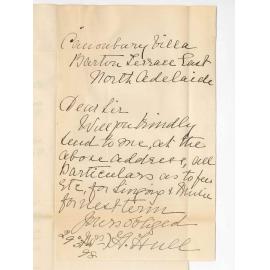 Canonbury Villa
Barton Terrace East
North Adelaide
Dear Sir
Will you kindly
send to me, at the
above address, all
Particulars as to fees
etc, for Singing & Music
for next term
Yours obliged
Hull